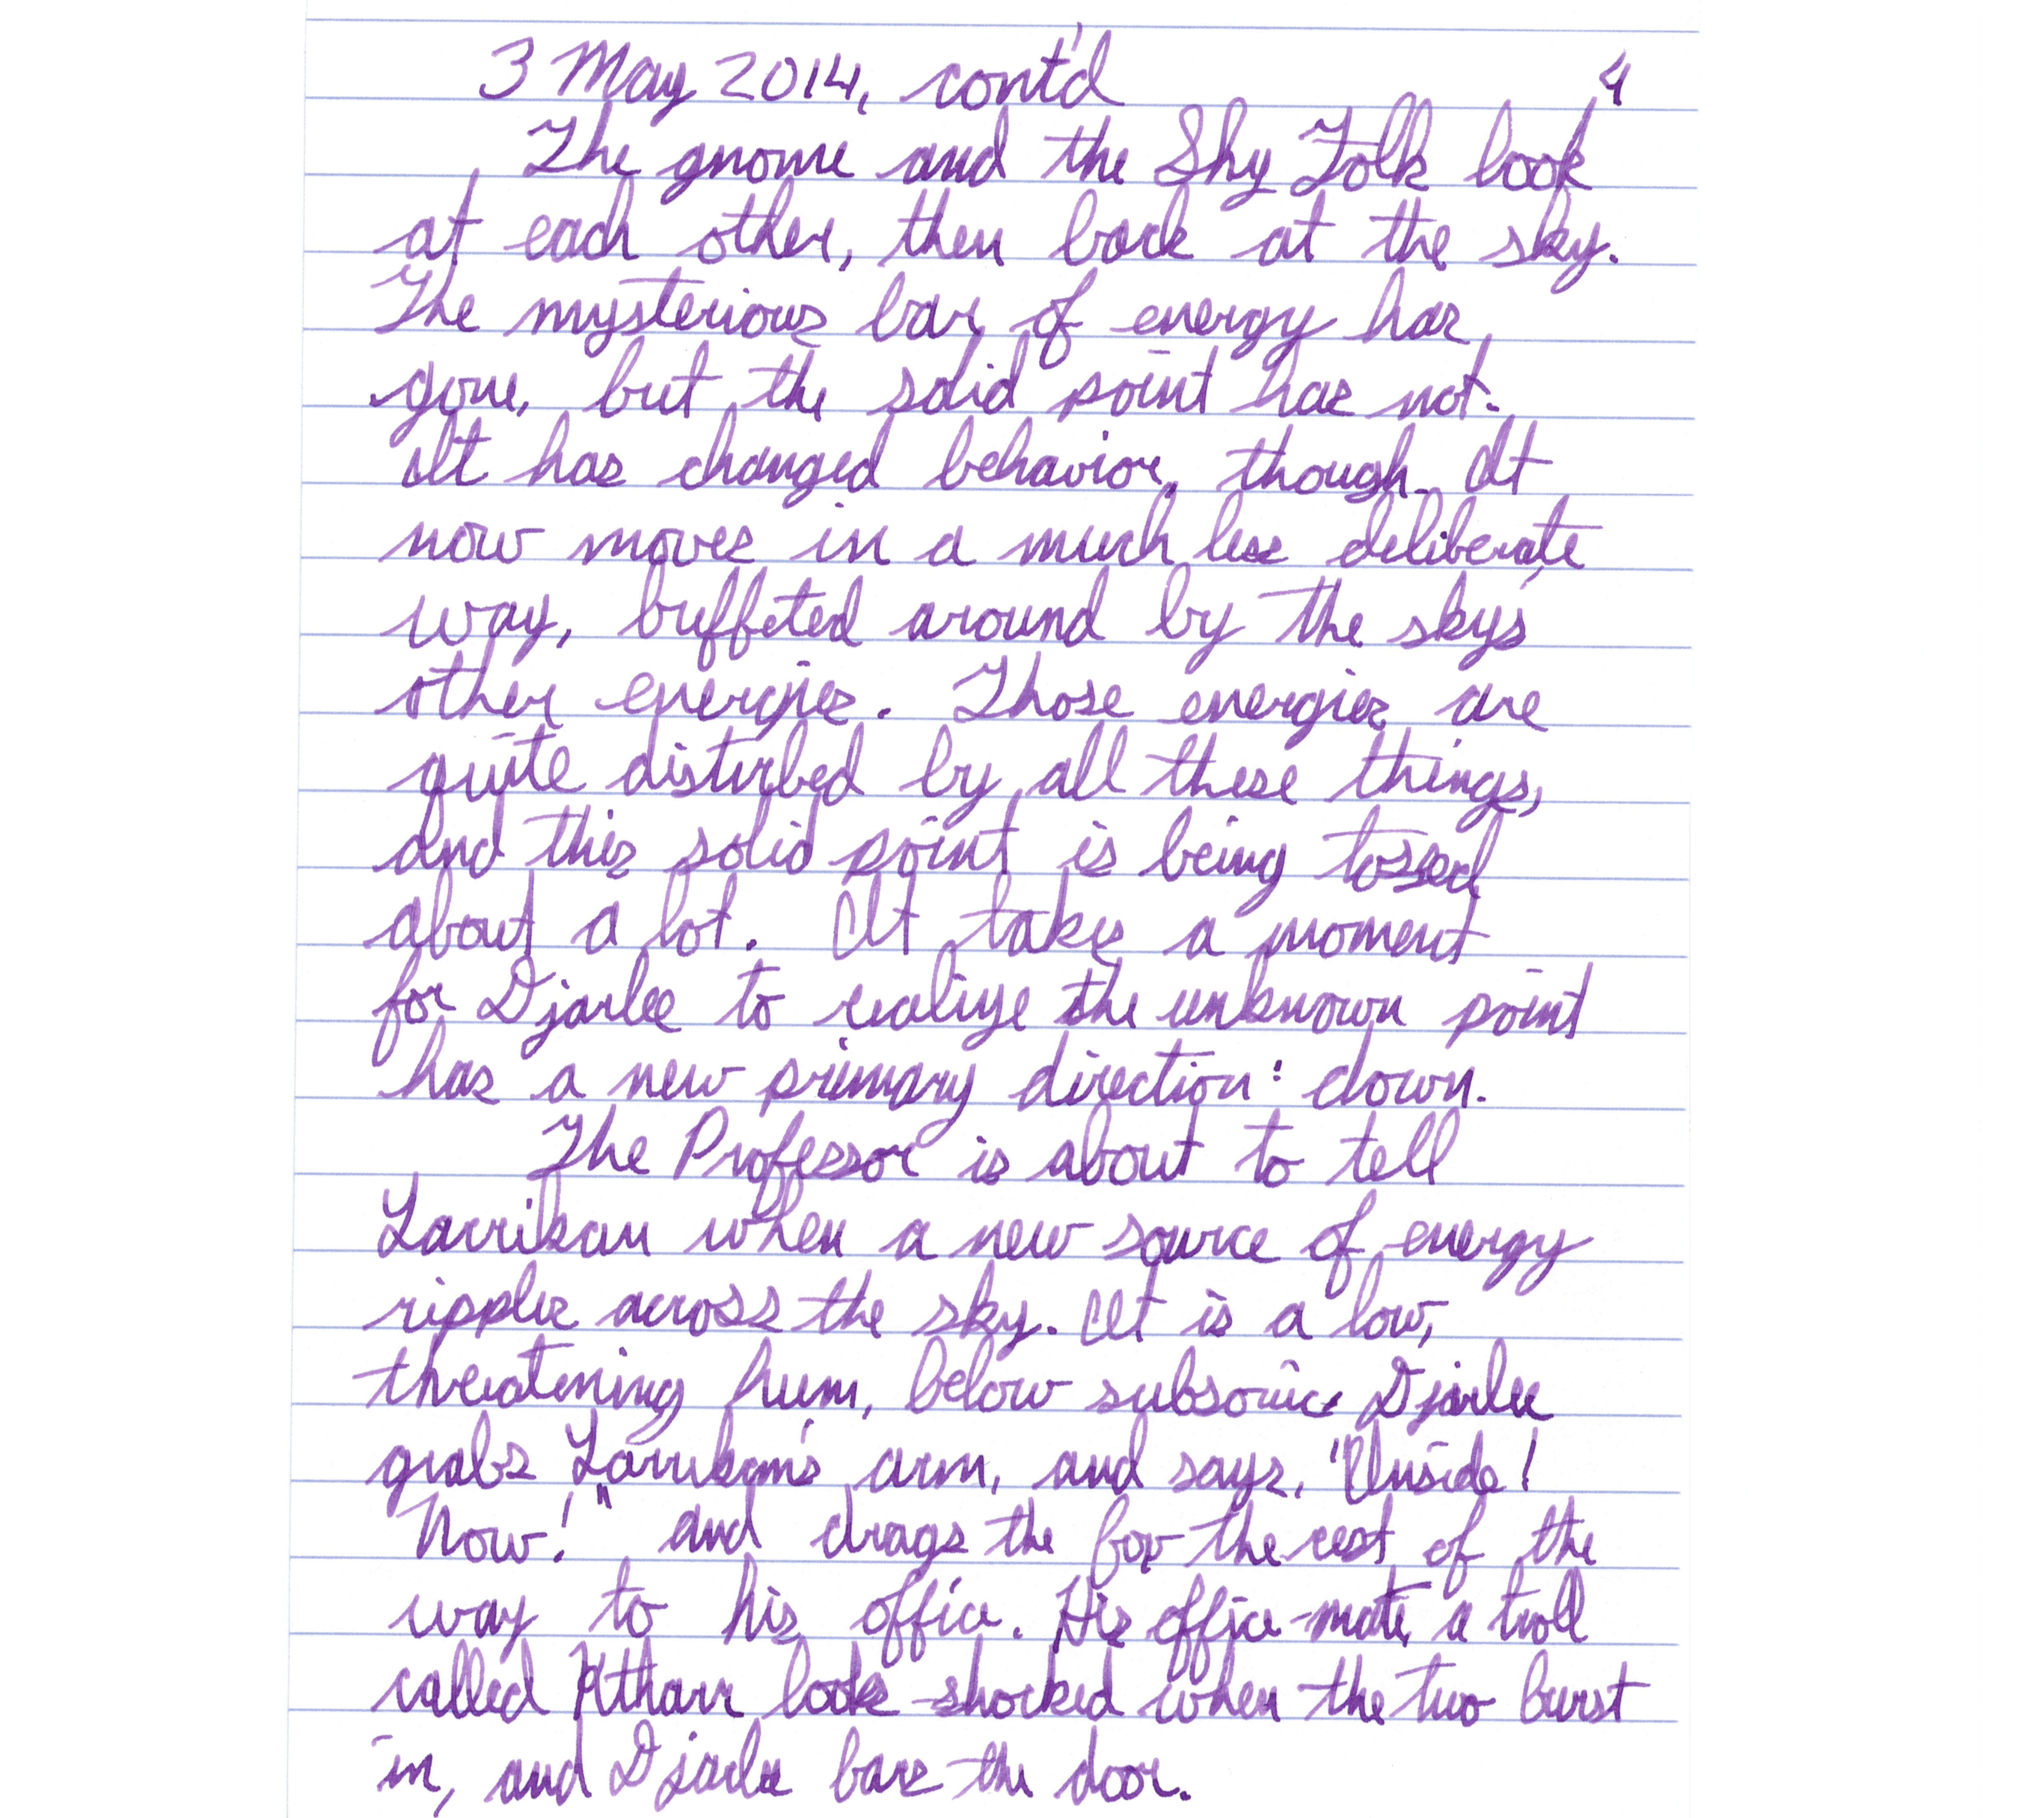 3 May 2014, cont'd 4
The gnome and the Shy Folk look
at each other, then back at the sky.
The mysterious bar of energy has
gone, but the solid point has not.
It has changed behavior, though. It
now moves in a much less deliberate
way, buffeted around by the sky's
other energies. Those energies are
quite disturbed by all these things,
and this solid point is being tossed
about a lot. It takes a moment
for Djarlee to realize the unknown point
has a new primary direction: down.
The Professor is about to tell
Larrikan when a new source of energy
ripples across the sky. It is a low,
threatening hum, below subsonic. Djarlee
grabs Larrikan's arm, and says, "Inside!
Now!" and drags the fox the rest of the
way to his office. His office-mate, a troll
called looks shocked when the two burst
in, and Djarlee bars the door.